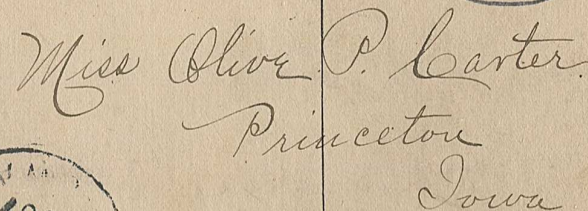 Miss Olive P. Carter.
Princeton
Iowa